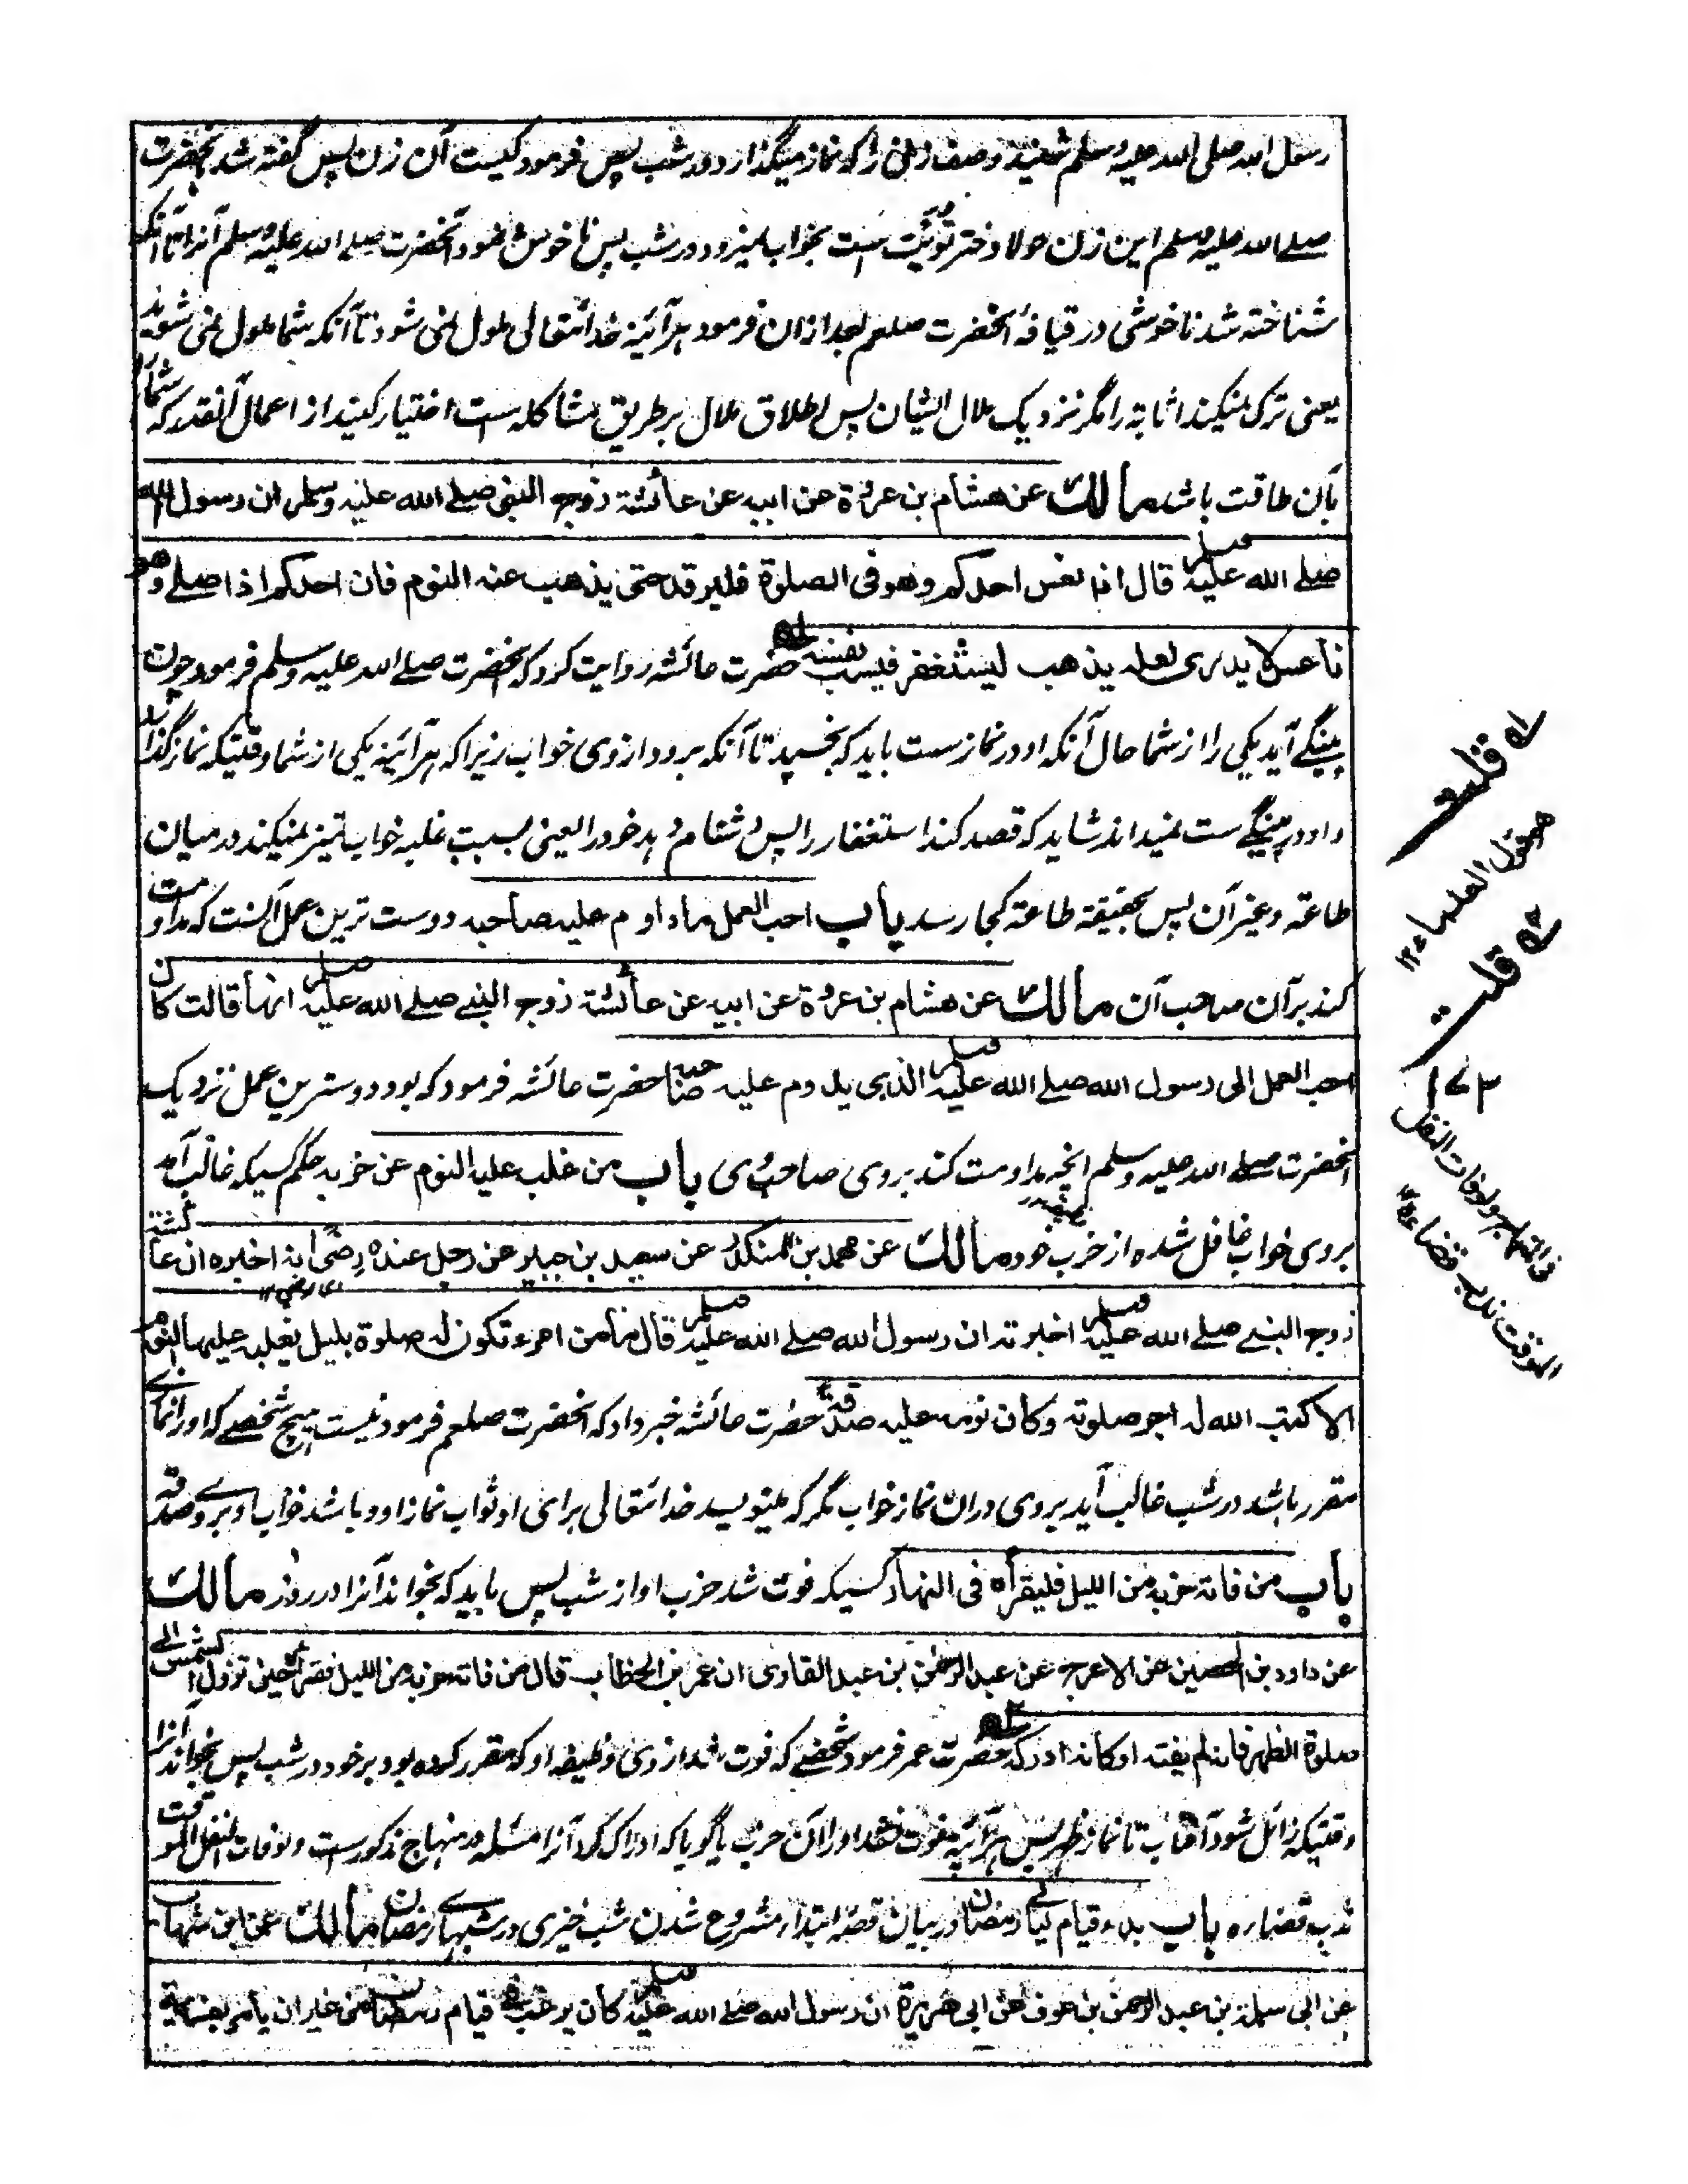 رسول الله صلی الله علیه وسلم شنید وصف زنی را که نماز میگذارد در شب پس فرمود کیست آن زن پس گفته شد بحضرت
صلے الله علیه وسلم این زن حولا دختر تویت ست بخواب نمیرود در شب پس ناخوش نمود آنحضرت صلے الله علیه وسلم آنرا تا آنکه
شناخته شد ناخوشی در قیافهٔ آنحضرت صلعم بعد ازان فرمود هر آئینه خدا تعالی ملول نمی شود تا آنکه شما ملول نمی شوید
یعنی ترک نمیکند اثابه را مگر نزدیک ملال ایشان پس اطلاق ملال بر طریق مشاکله ست اختیار کنید از اعمال آنقدر که شما را
بآن طاقت باشد مالك عن هشام بن عروة عن ابیه عن عائشة زوج النبی صلے الله علیه وسلم ان رسول الله
صلے الله علیه وسلم قال اذا نعس احدکم وهو فی الصلوة فلیرقد حتی یذهب عنه النوم فان احدکم اذا صلے وهو
ناعس لا یدری لعله یذهب لیستغفر فیسب نفسه حضرت عائشه روایت کرد که آنحضرت صلے الله علیه وسلم فرمود چون
پینگے آید یکی را از شما حال آنکه او در نماز ست باید که بخسپد تا آنکه برود از وی خواب زیرا که هر آئینه یکی از شما وقتیکه نماز گذارد
و او در پینگے ست نمیداند شاید که قصد کند استغفار را پس دشنام دهد خود را یعنی بسبب غلبه خواب تمیز نمیکند در میان
طاعة وغیر آن پس بحقیقة طاعة کجا رسد باب احب العمل ما داوم علیه صاحبه دوست ترین عمل آنست که مداومت
کند بر آن صاحب آن مالك عن هشام بن عروة عن ابیه عن عائشة زوج النبی صلے الله علیه وسلم انها قالت کان
احب العمل الی رسول الله صلے الله علیه وسلم الذی یدوم علیه صاحبه حضرت عائشه فرمود که بود دوسترین عمل نزدیک
آنحضرت صلے الله علیه وسلم آنچه مداومت کند بروی صاحب وی باب من غلب علیه النوم عن حزبه حکم کسیکه غالب آمد
بروی خواب غافل شده از حزب خود مالك عن محمد بن المنکدر عن سعید بن جبیر عن رجل عنده رضی انه اخبره ان عائشة
زوج النبی صلے الله علیه وسلم اخبرته ان رسول الله صلے الله علیه وسلم قال ما من امرء تکون له صلوة بلیل یغلبه علیها النوم
الا کتب الله له اجر صلوته وکان نومه علیه صدقة حضرت عائشه خبر داد که آنحضرت صلعم فرمود نیست هیچ شخصے که او را نمازے
مقرر باشد در شب غالب آید بروی دران نماز خواب مگر که بنویسد خدا تعالی برای او ثواب نماز او و باشد خواب او بروے صدقه
باب من فاته حزبه من اللیل فلیقرأه فی النهار کسیکه فوت شد حزب او از شب پس باید که بخواند آنرا در روز مالك
عن داود بن الحصین عن الاعرج عن عبد الرحمن بن عبد القاری ان عمر بن الخطاب قال من فاته حزبه من اللیل فقرأه حین تزول الشمس الی
صلوة الظهر فانه لم یفته او کانه ادرکه حضرت عمر فرمود شخصے که فوت شد از وی وظیفه او که مقرر کرده بود بر خود در شب پس بخواند آنرا
وقتیکه زائل شود آفتاب تا نماز ظهر پس هر آئینه فوت نشد او را آن حزب یا گویا که ادراک کرد آنرا مسئله در منهاج مذکورست ولو فات النفل الموقت
ندب قضاره باب بدء قیام لیالی رمضان در بیان قصه ابتدا مشروع شدن شب خیزی در شبهائے رمضان مالك عن ابن شهاب
عن ابی سلمة بن عبد الرحمن بن عوف عن ابی هریرة ان رسول الله صلے الله علیه وسلم کان یرغب فی قیام رمضان من غیر ان یامر بعزیمة
قلت
قول العلماء ۱۲
قلت
۱۷۳
فی المنهاج ولو فات النفل
الموقت ندب قضاءه ۱۲